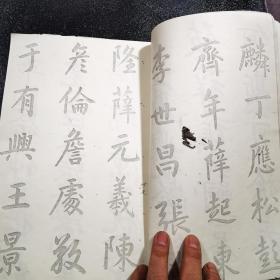 麟丁應松
齊年薛起東
李世昌張
隆薛元義陳
彥倫詹處敎
于有興王景